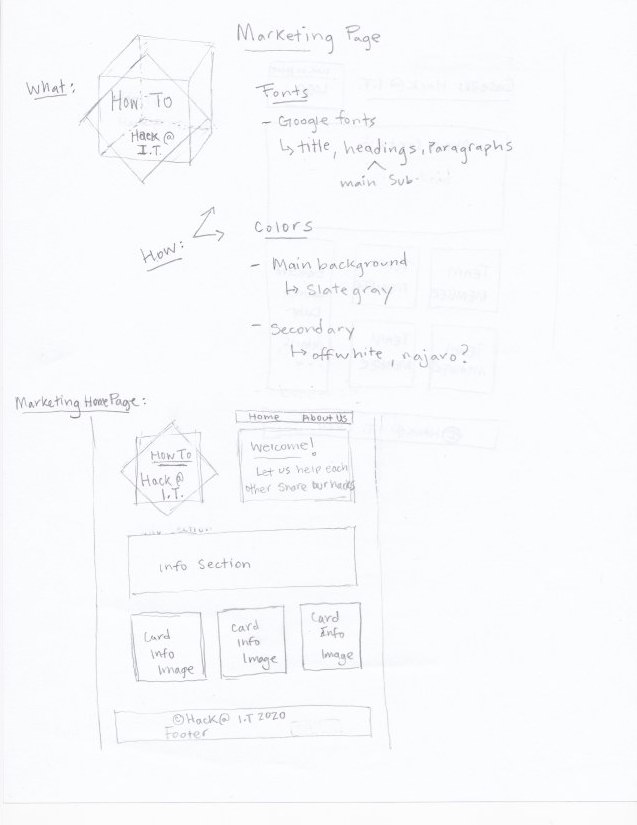 Marketing Page
What:
How To
Hack @
I.T.
Fonts
- Google fonts
↳ title, headings, Paragraphs
main Sub-
How:
Colors
- Main background
↳ Slate gray
- Secondary
↳ offwhite, najaro?
Marketing Home Page:
Home About Us
How To
Hack @
I.T.
Welcome!
Let us help each
other Share our hacks
Info Section
Card
Info
Image
Card
Info
Image
Card
Info
Image
©Hack@ I.T 2020
Footer